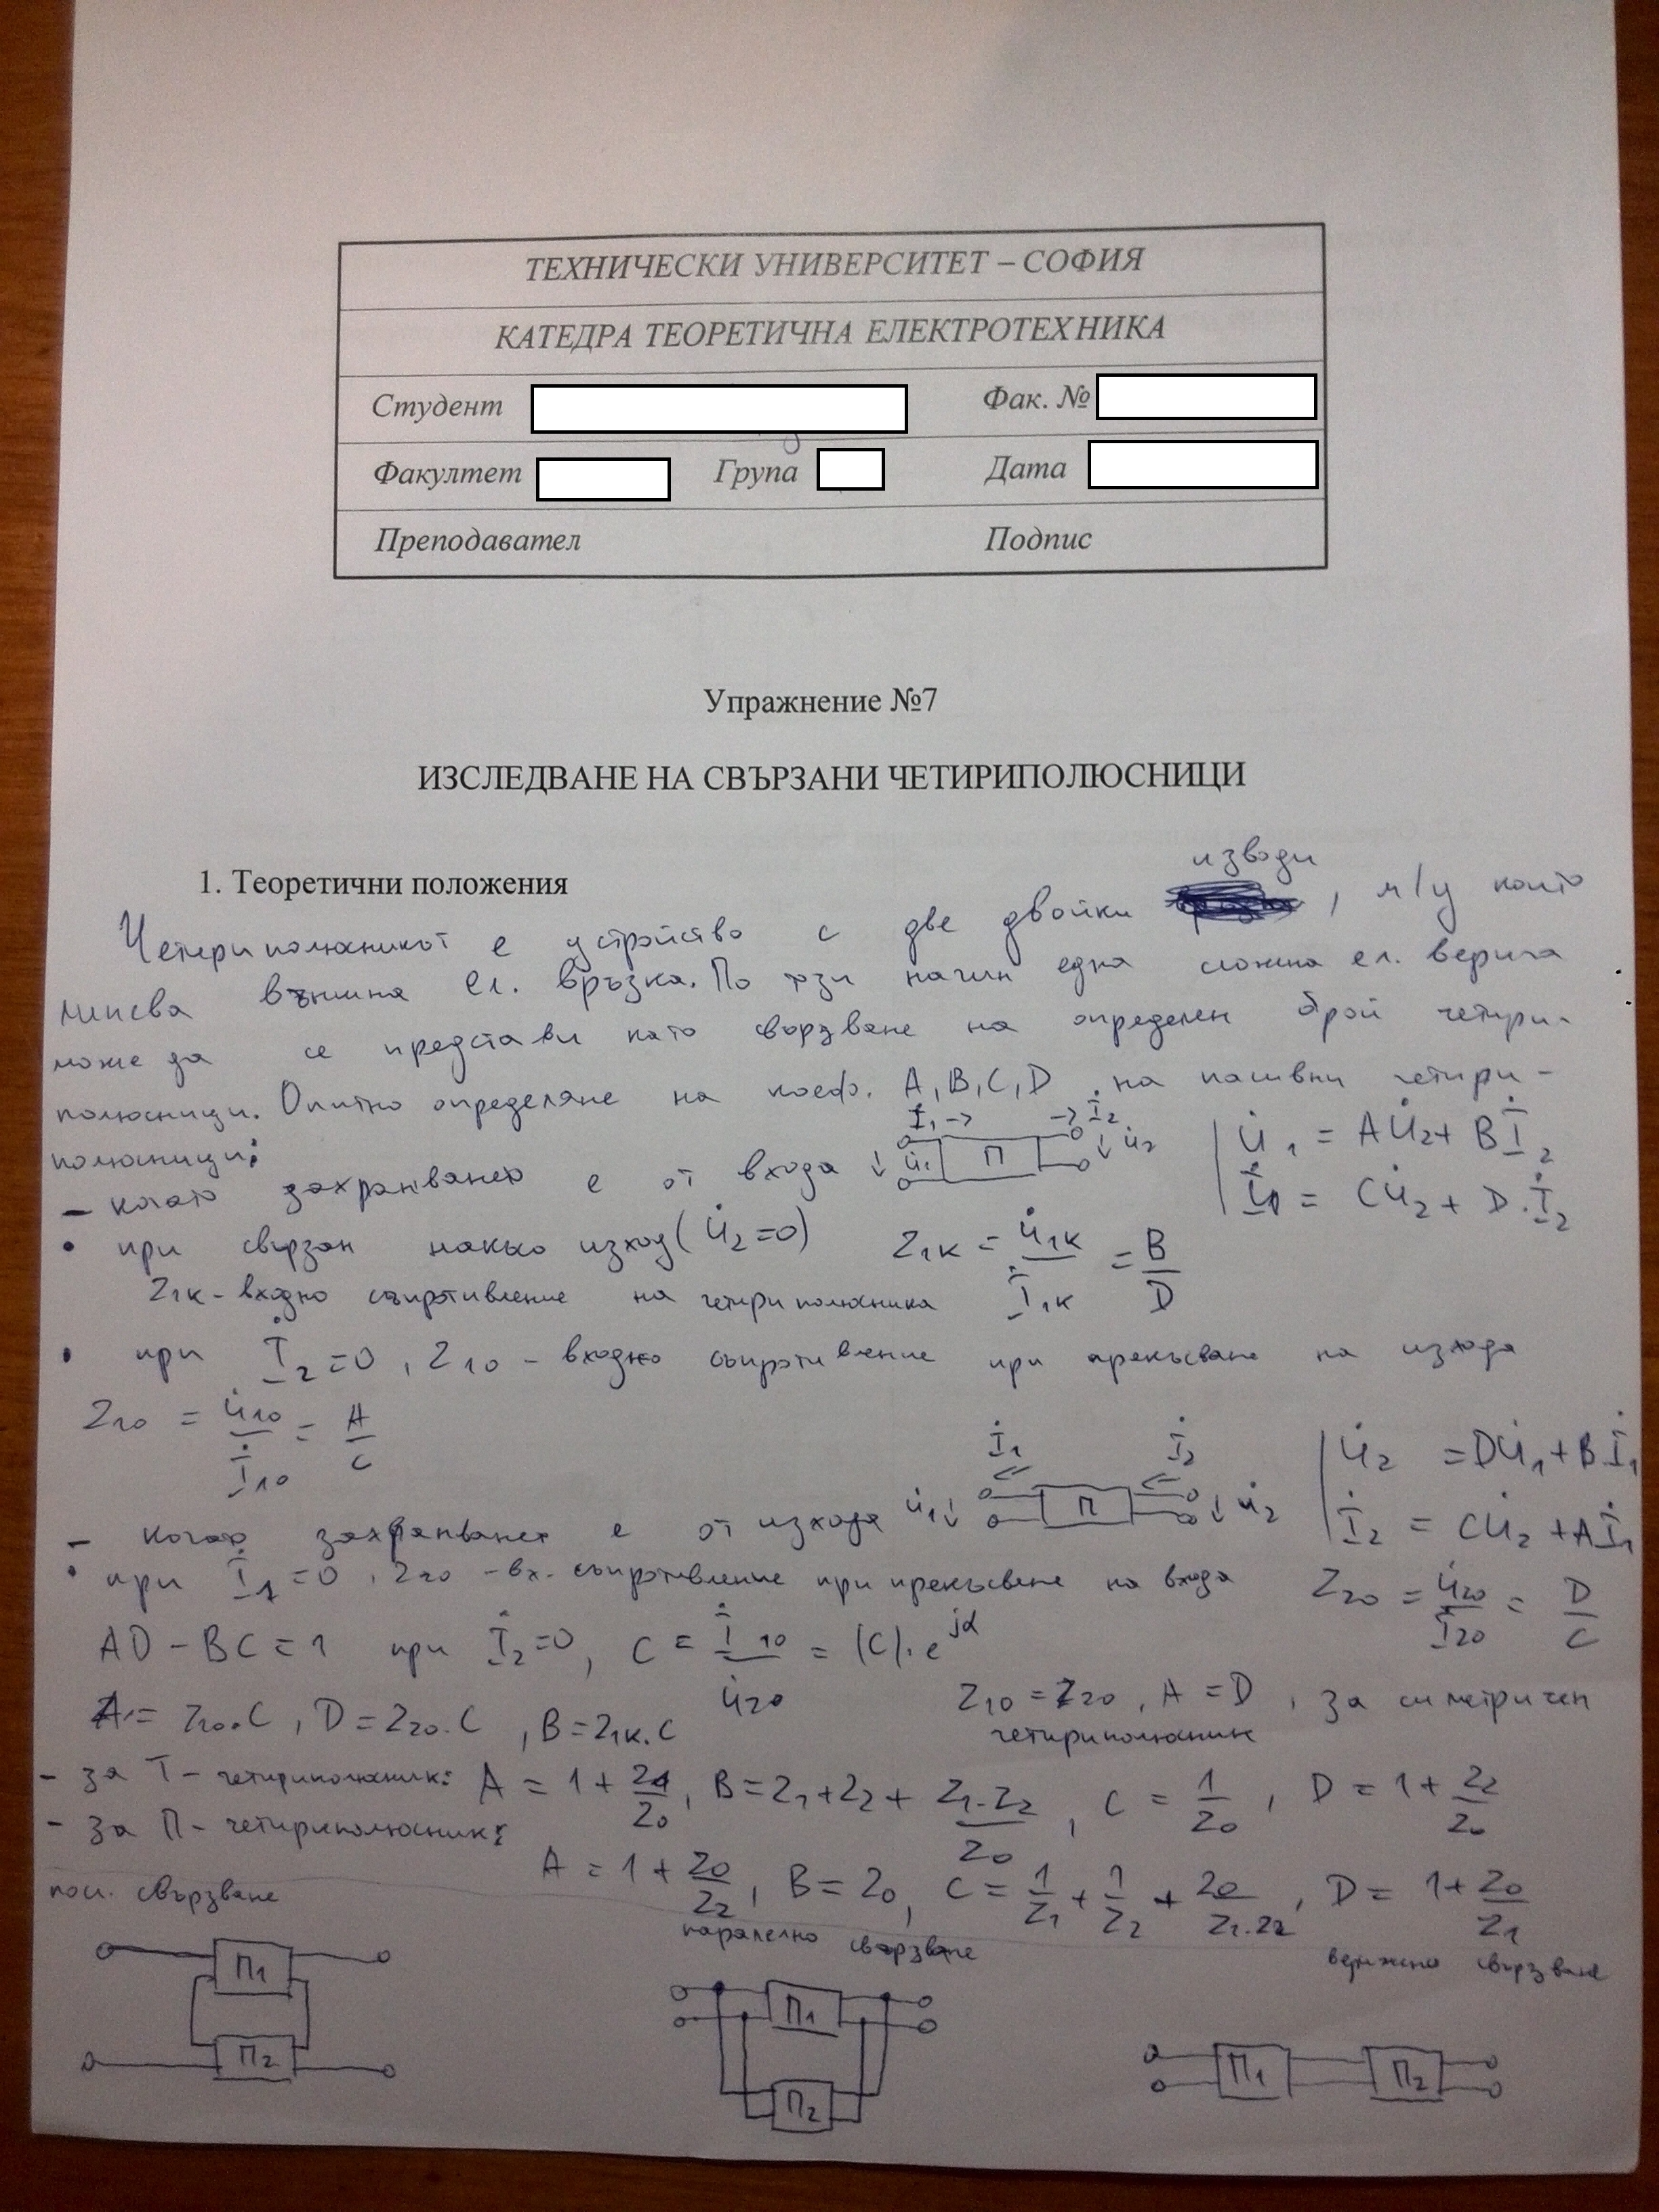 ТЕХНИЧЕСКИ УНИВЕРСИТЕТ – СОФИЯ
КАТЕДРА ТЕОРЕТИЧНА ЕЛЕКТРОТЕХНИКА
Студент Фак. №
Факултет Група Дата
Преподавател Подпис
Упражнение №7
ИЗСЛЕДВАНЕ НА СВЪРЗАНИ ЧЕТИРИПОЛЮСНИЦИ
1. Теоретични положения
изводи
Четириполюсникът е устройство с две двойки , м/у които
липсва външна ел. връзка. По този начин една сложна ел. верига
може да се представи като свързване на определен брой четири-
полюсници. Опитно определяне на коеф. A, B, C, D на пасивни четири-
полюсници:
- когато захранването е от входа ↓ U̇₁ İ₁ → П → İ₂ ↓ U̇₂ | U̇₁ = AU̇₂ + Bİ₂
İ₁ = CU̇₂ + D.İ₂
• при свързан накъсо изход (U̇₂=0) Z₁к = U̇₁к / İ₁к = B / D
Z₁к - входно съпротивление на четириполюсника
• при İ₂=0, Z₁₀ - входно съпротивление при прекъсване на изхода
Z₁₀ = U̇₁₀ / İ₁₀ = A / C
- когато захранването е от изхода U̇₁↓ İ₁ ← П ← İ₂ ↓U̇₂ | U̇₂ = DU̇₁ + Bİ₁
İ₂ = CU̇₂ + Aİ₁
• при İ₁=0, Z₂₀ - вх. съпротивление при прекъсване на входа Z₂₀ = U̇₂₀ / İ₂₀ = D / C
AD - BC = 1 при İ₂=0, C = İ₁₀ / U̇₂₀ = (C).e^jα
A = Z₁₀.C, D = Z₂₀.C, B = Z₁к.C Z₁₀ = Z₂₀, A = D, за симетричен
четириполюсник
- за T - четириполюсник: A = 1 + Z₁/Z₀, B = Z₁ + Z₂ + Z₁.Z₂/Z₀, C = 1/Z₀, D = 1 + Z₂/Z₀
- за П - четириполюсник:
A = 1 + Z₀/Z₂, B = Z₀, C = 1/Z₁ + 1/Z₂ + Z₀/Z₁.Z₂, D = 1 + Z₀/Z₁
посл. свързване паралелно свързване верижно свързване
П₁ П₁ П₁ П₂
П₂ П₂